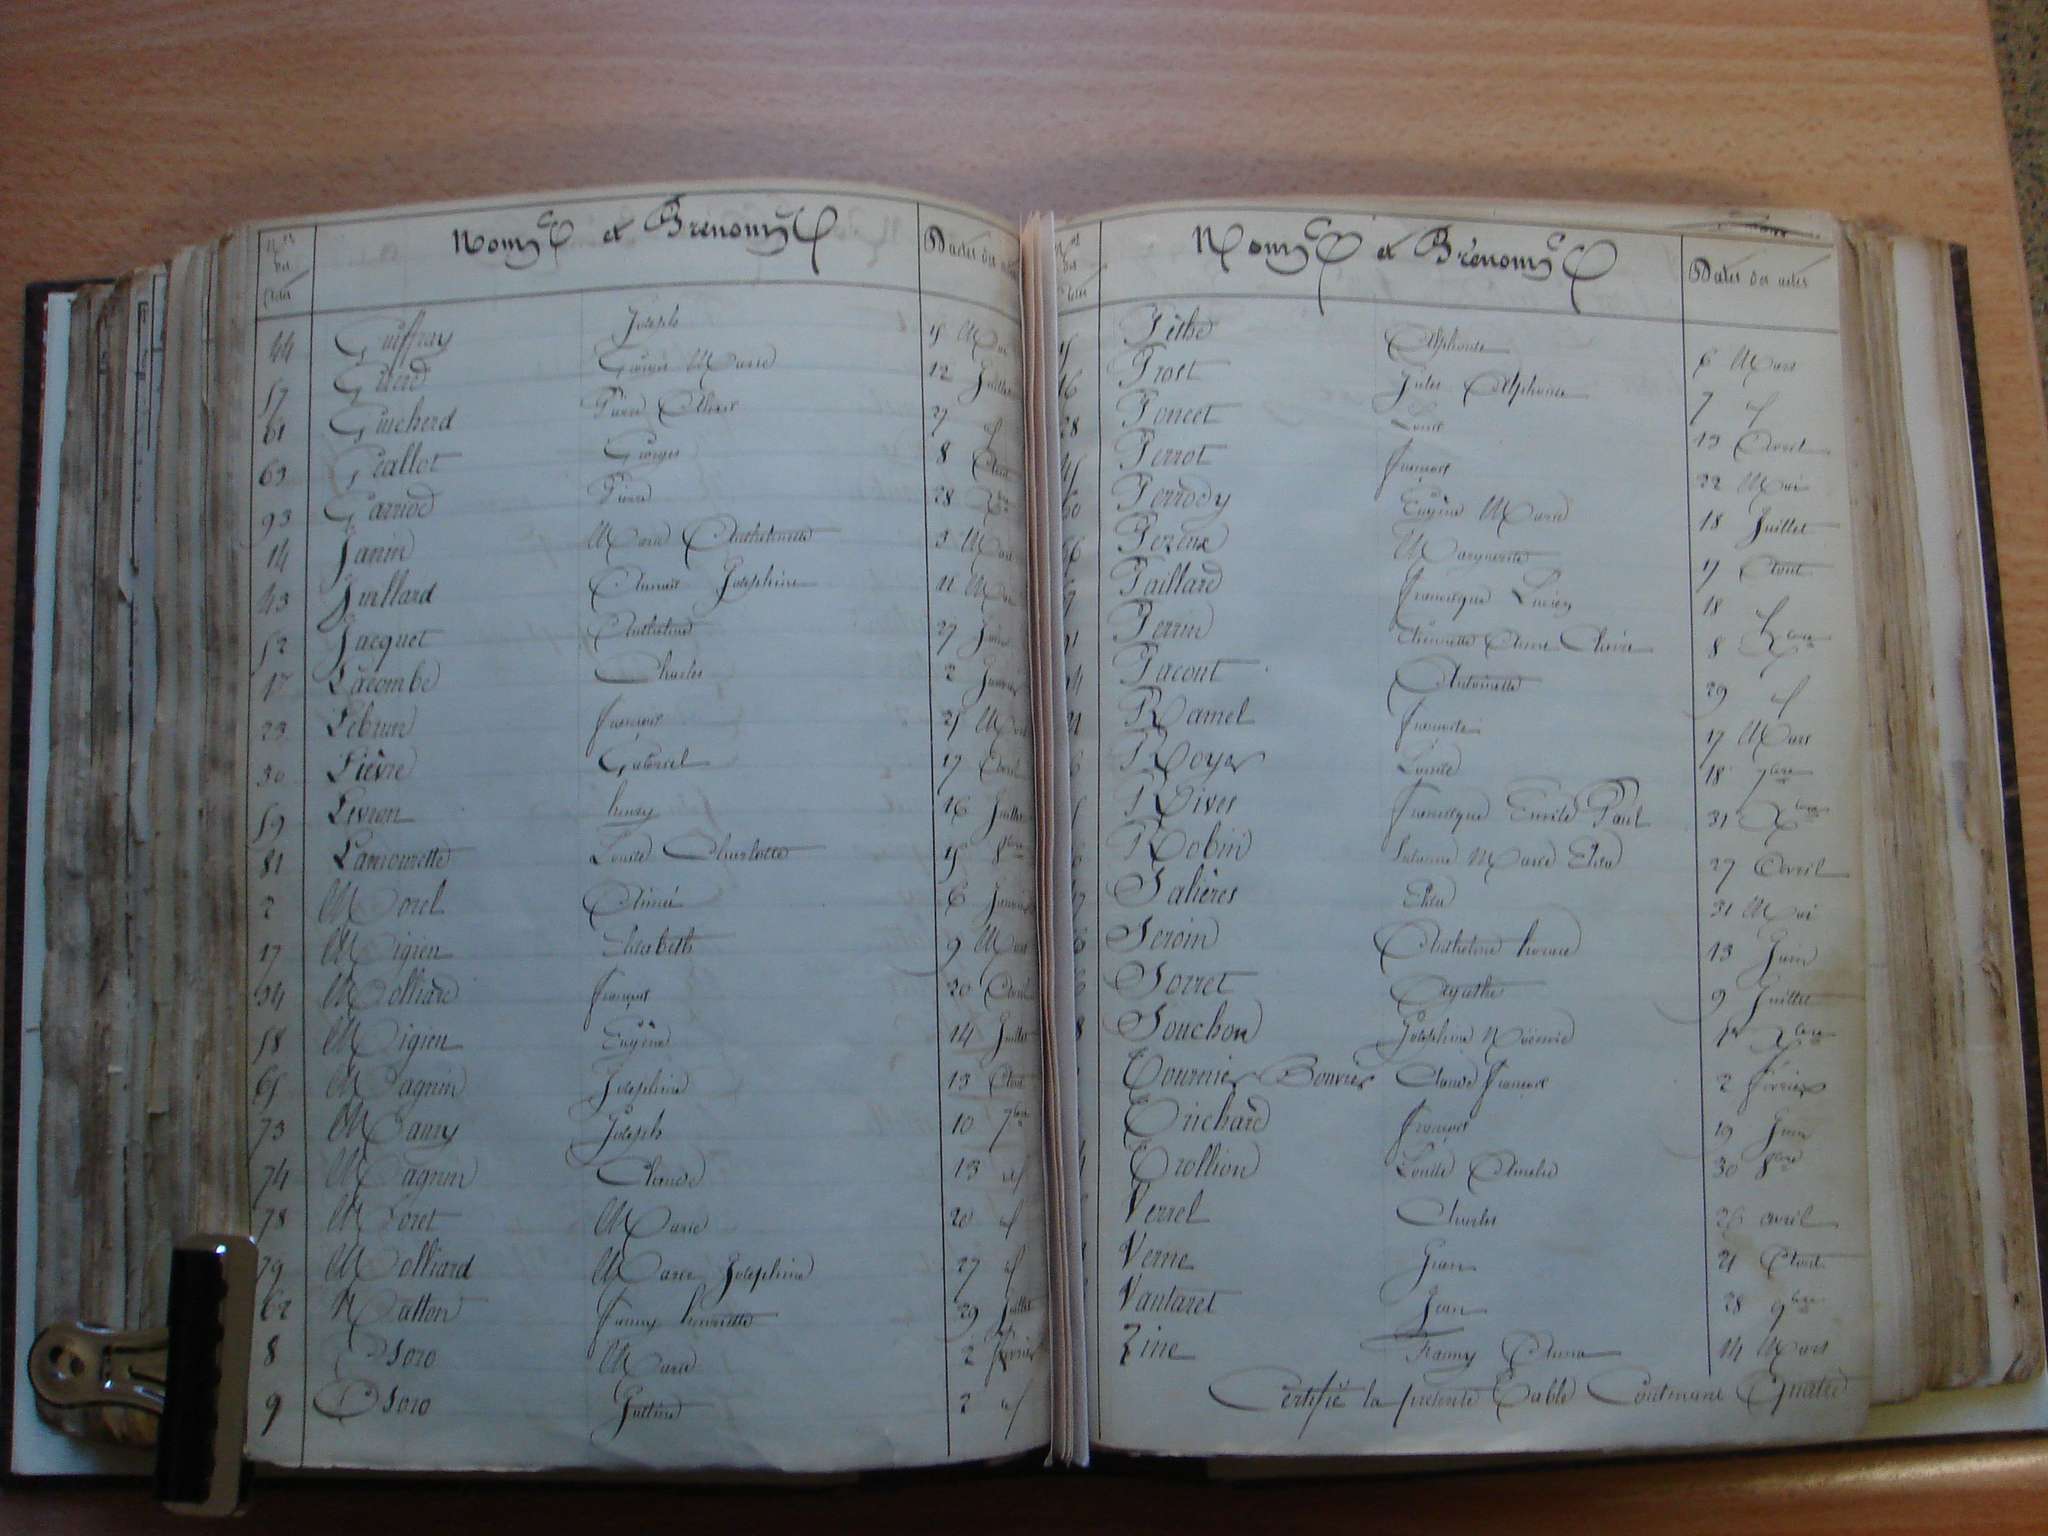 Nos des actes Noms et Prénoms Dates des actes
44 Guiffray Joseph 15 Mai
57 Girerd Marie 12 Juillet
61 Guicherd Pierre 27 d
63 Gallot Georges 8 Aout
93 Garriod Pierre 28 Xbre
14 Janin Marie 3 Mars
43 Juillard Joséphine 11 Mai
52 Jacquet 27 Juin
17 Lacombe Charles 2 Janvier
23 Lebrun François 25 Mars
30 Lièvre Gabriel 17 Avril
59 Levron henry 16 Juillet
81 Lamourette Louise Charlotte 15 8bre
2 Morel Aimée 6 Janvier
17 Migieu Elisabeth 9 Mars
34 Molliard François 20 Avril
58 Migieu Eugène 14 Juillet
65 Magnin Joséphine 13 Aout
73 Many Joseph 10 7bre
74 Magnin Claude 13 d
78 Moret Marie 20 d
79 Molliard Marie Joséphine 27 d
62 Natton Fanny henriette 29 Juillet
8 Osoro Marie 2 février
9 Osoro 2 d
Noms et Prénoms Dates des actes
Alphonse 6 Mars
Prost Jules Alphonse 7 d
28 Poncet Louise 13 Avril
Perrot François 22 Mai
60 Perrody Eugène Marie 18 Juillet
66 Marguerite 17 Aout
Paillard Lucien 18 d
Perrin Anne Claire 8 Xbre
Pacout Antoinette 29 d
Ramel 17 Mars
Royer Louise 18 7bre
Rives Emile Paul 31 Xbre
Robin Marie Elisa 27 Avril
Salières Elisa 31 Mai
Seroin 13 Juin
Sorret Agathe 9 Juillet
Souchon Joséphine Noémie Xbre
Tournier Bonvier Claude François 2 février
Trichard François 19 Juin
Trollion Louise Amélie 30 8bre
Verrel Charles 26 avril
Verne Jean 21 Aout
Vantaret Jean 28 9bre
Zine Fanny 14 Mars
Certifié la présente Table Contenant Quatre